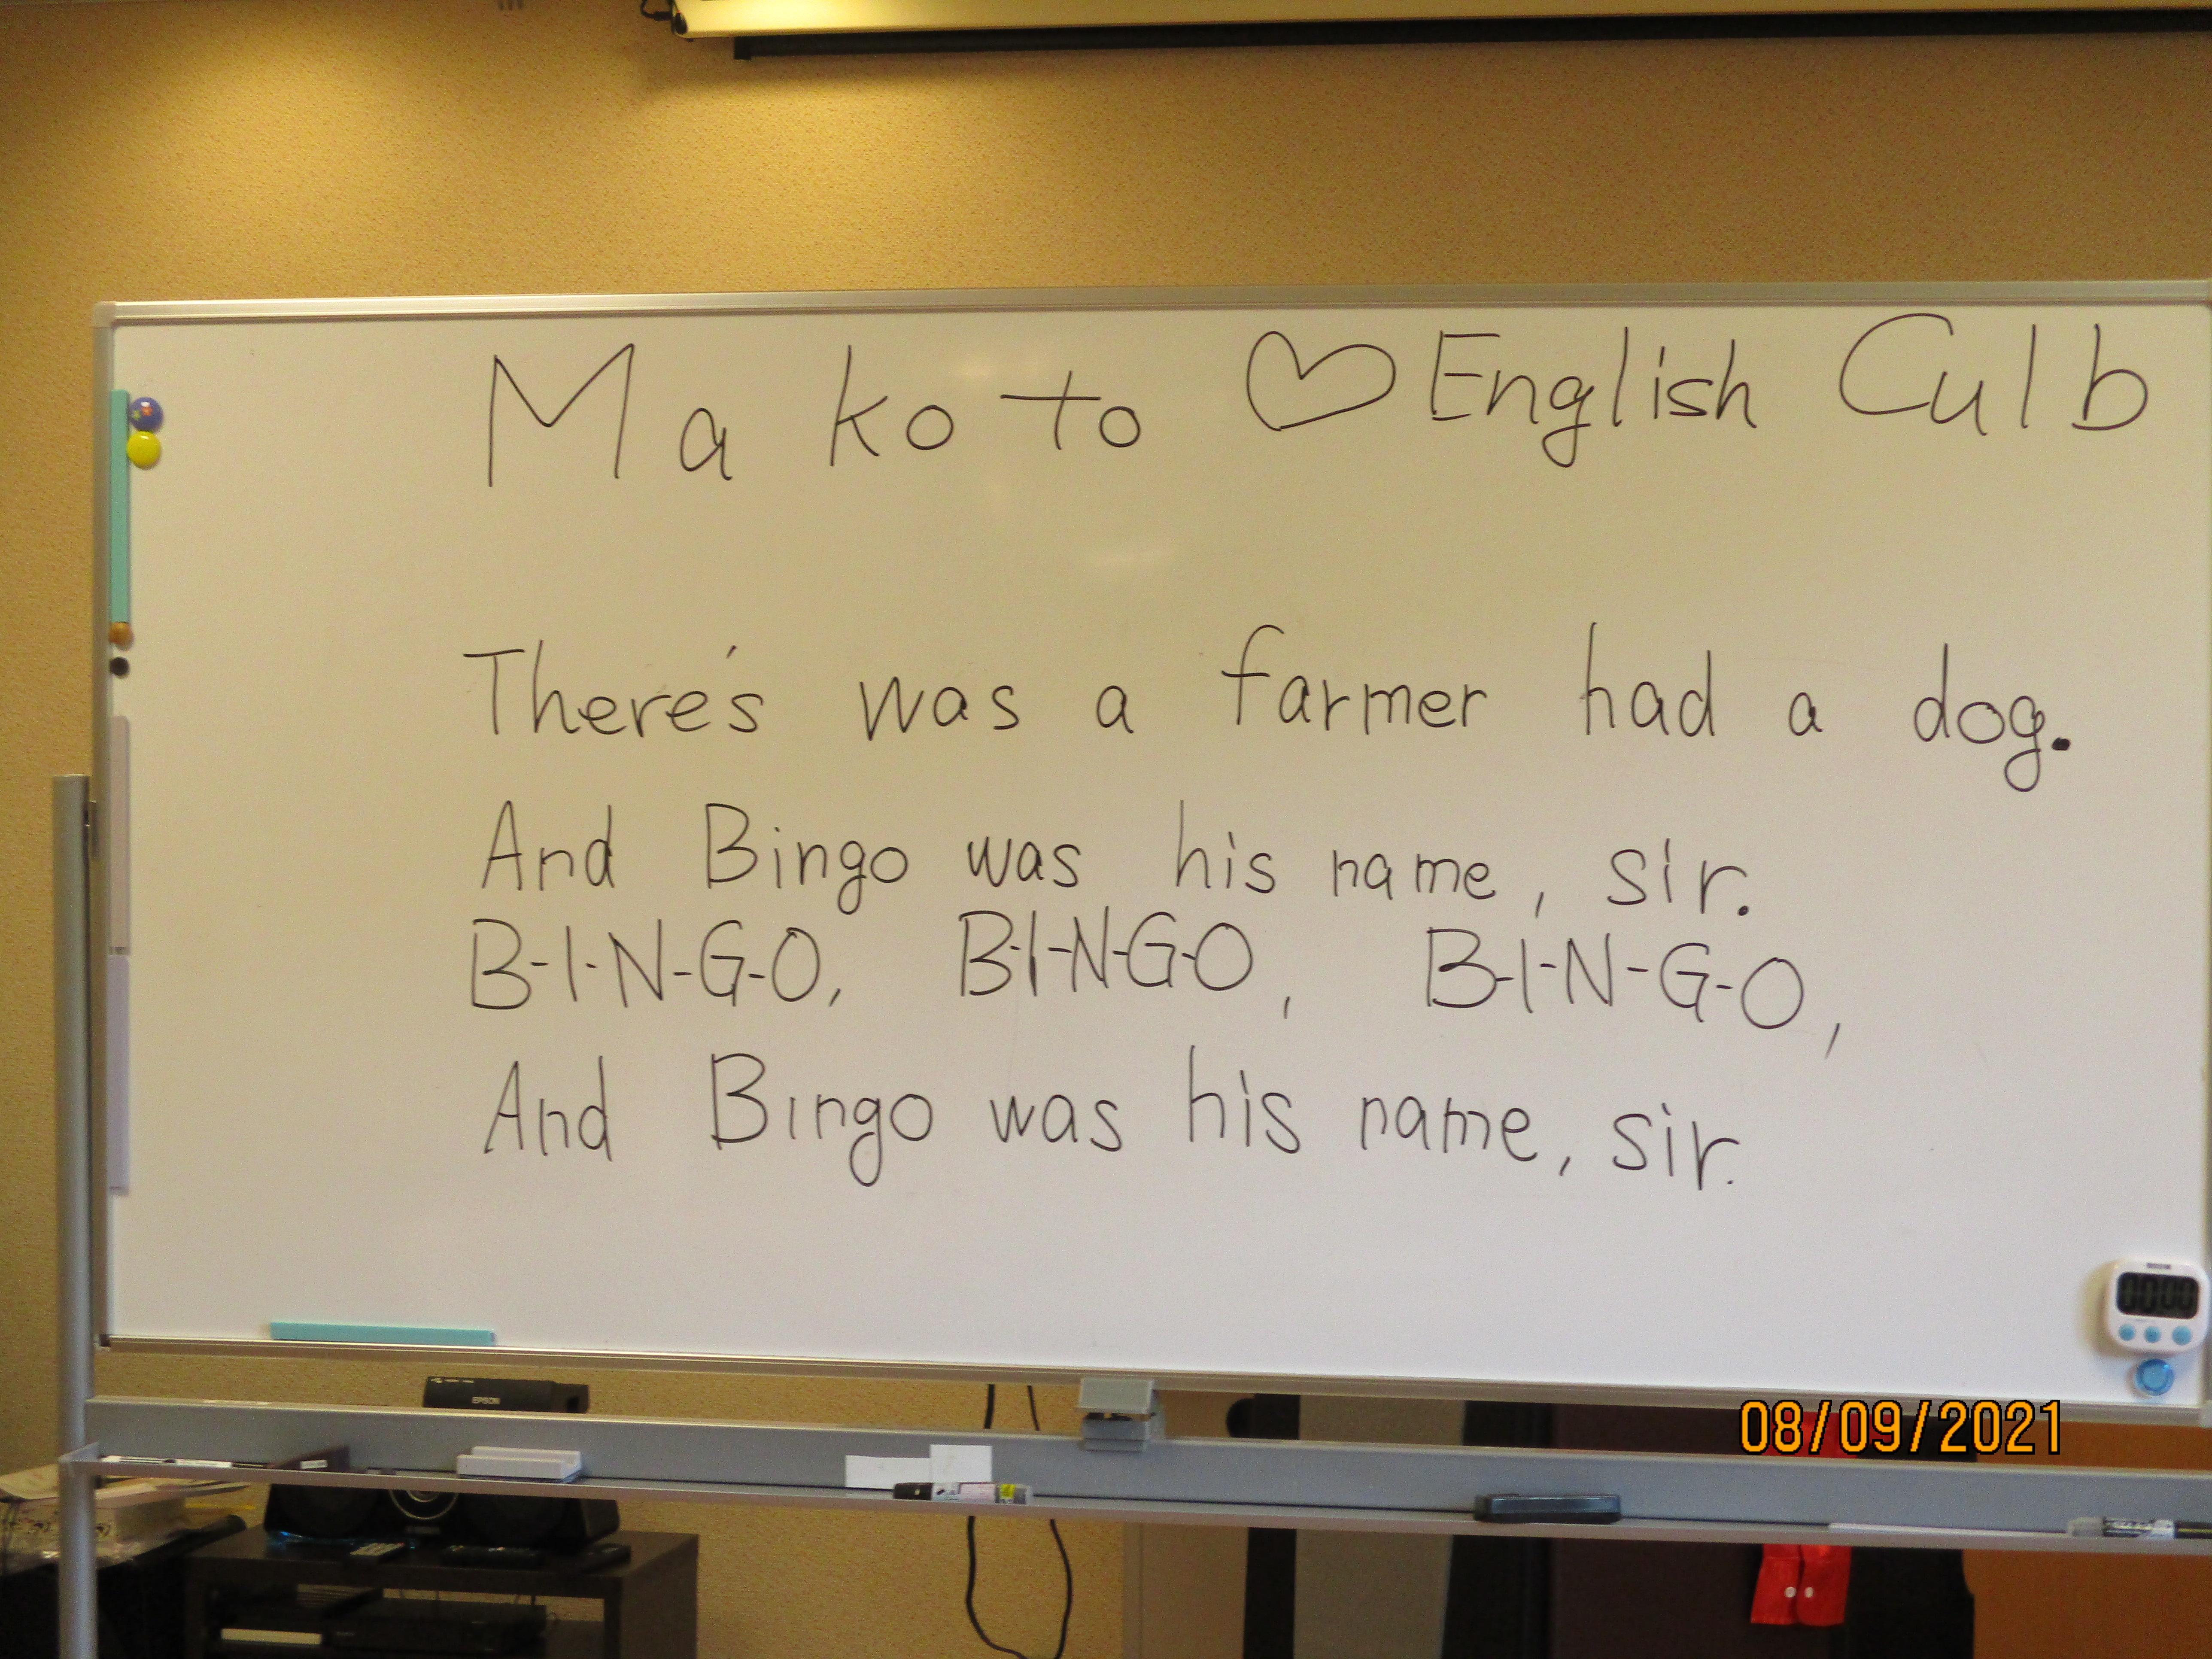 Makoto ♡ English Culb
There's was a farmer had a dog.
And Bingo was his name, sir.
B-I-N-G-O, B-I-N-G-O, B-I-N-G-O,
And Bingo was his name, sir.
00:00
EPSON
08/09/2021